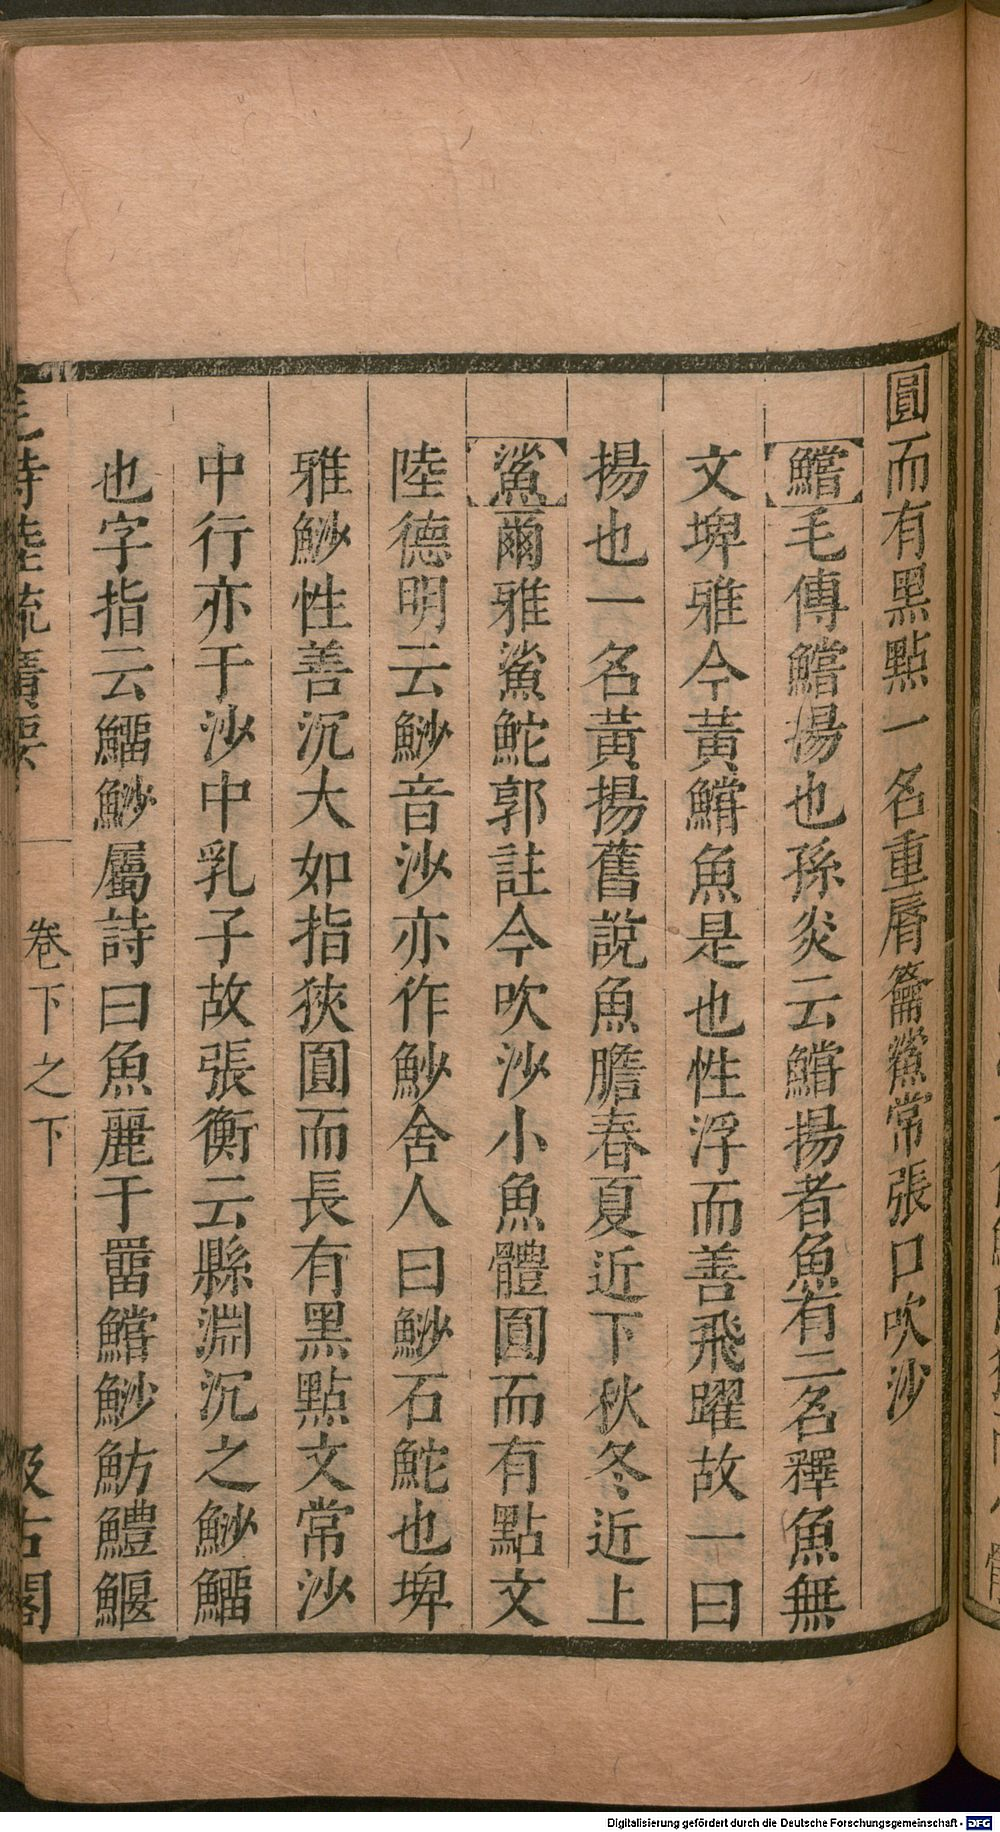 圓而有黑點一名重脣籥鯊常張口吹沙
鱨毛傳鱨揚也孫炎云鱨揚者魚有二名釋魚無
文埤雅今黃鱨魚是也性浮而善飛躍故一曰
揚也一名黃揚舊說魚膽春夏近下秋冬近上
鯊爾雅鯊鮀郭註今吹沙小魚體圓而有點文
陸德明云魦音沙亦作魦舍人曰魦石鮀也埤
雅魦性善沉大如指狹圓而長有黑點文常沙
中行亦于沙中乳子故張衡云縣淵沉之魦鰡
也字指云鰡魦屬詩曰魚麗于罶鱨魦魴鱧鰋
毛詩陸疏廣要
卷下之下
汲古閣
Digitalisierung gefördert durch die Deutsche Forschungsgemeinschaft - DFG